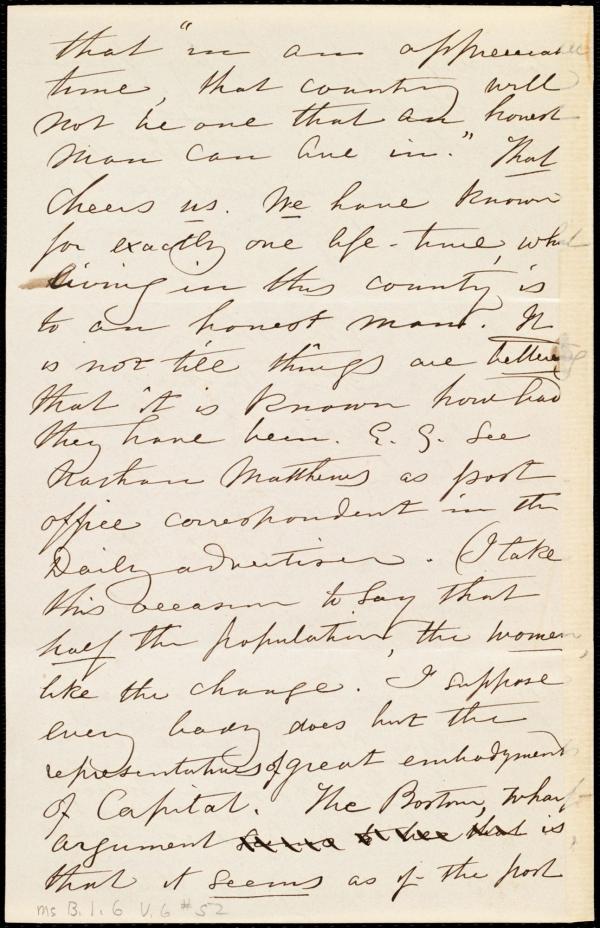 that "in an appreciable
time, that country will
not be one that an honest
man can live in." That
cheers us. We have known
for exactly one life-time, what
living in this country is
to an honest man. It
is not till things are bettering
that it is known how bad
they have been. E. G. See
Nathan Matthews as post
office correspondent in the
Daily advertiser. (I take
this occasion to say that
half the population, the women,
like the change. I suppose
every body does but the
representatives of great embodyments
of Capital. The Boston, wharf
argument is
that it seems as if the post
Ms B. 1. 6 V. 6 #52